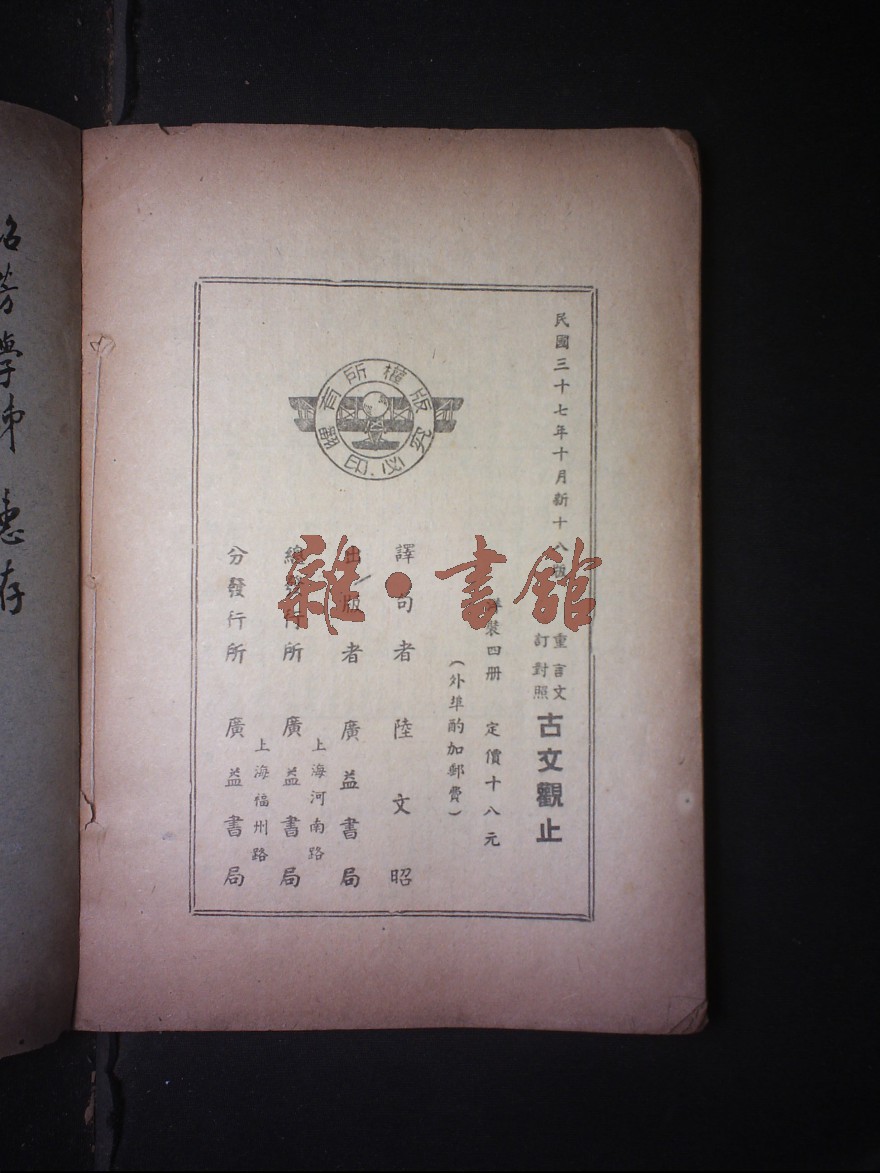 民國三十七年十月新十八版
重訂 言文對照 古文觀止
洋裝四册 定價十八元
(外埠酌加郵費)
譯句者 陸文昭
出版者 廣益書局
上海河南路
總發行所 廣益書局
上海福州路
分發行所 廣益書局
版權所有
翻印必究
雜·書館
芳學弟 惠存